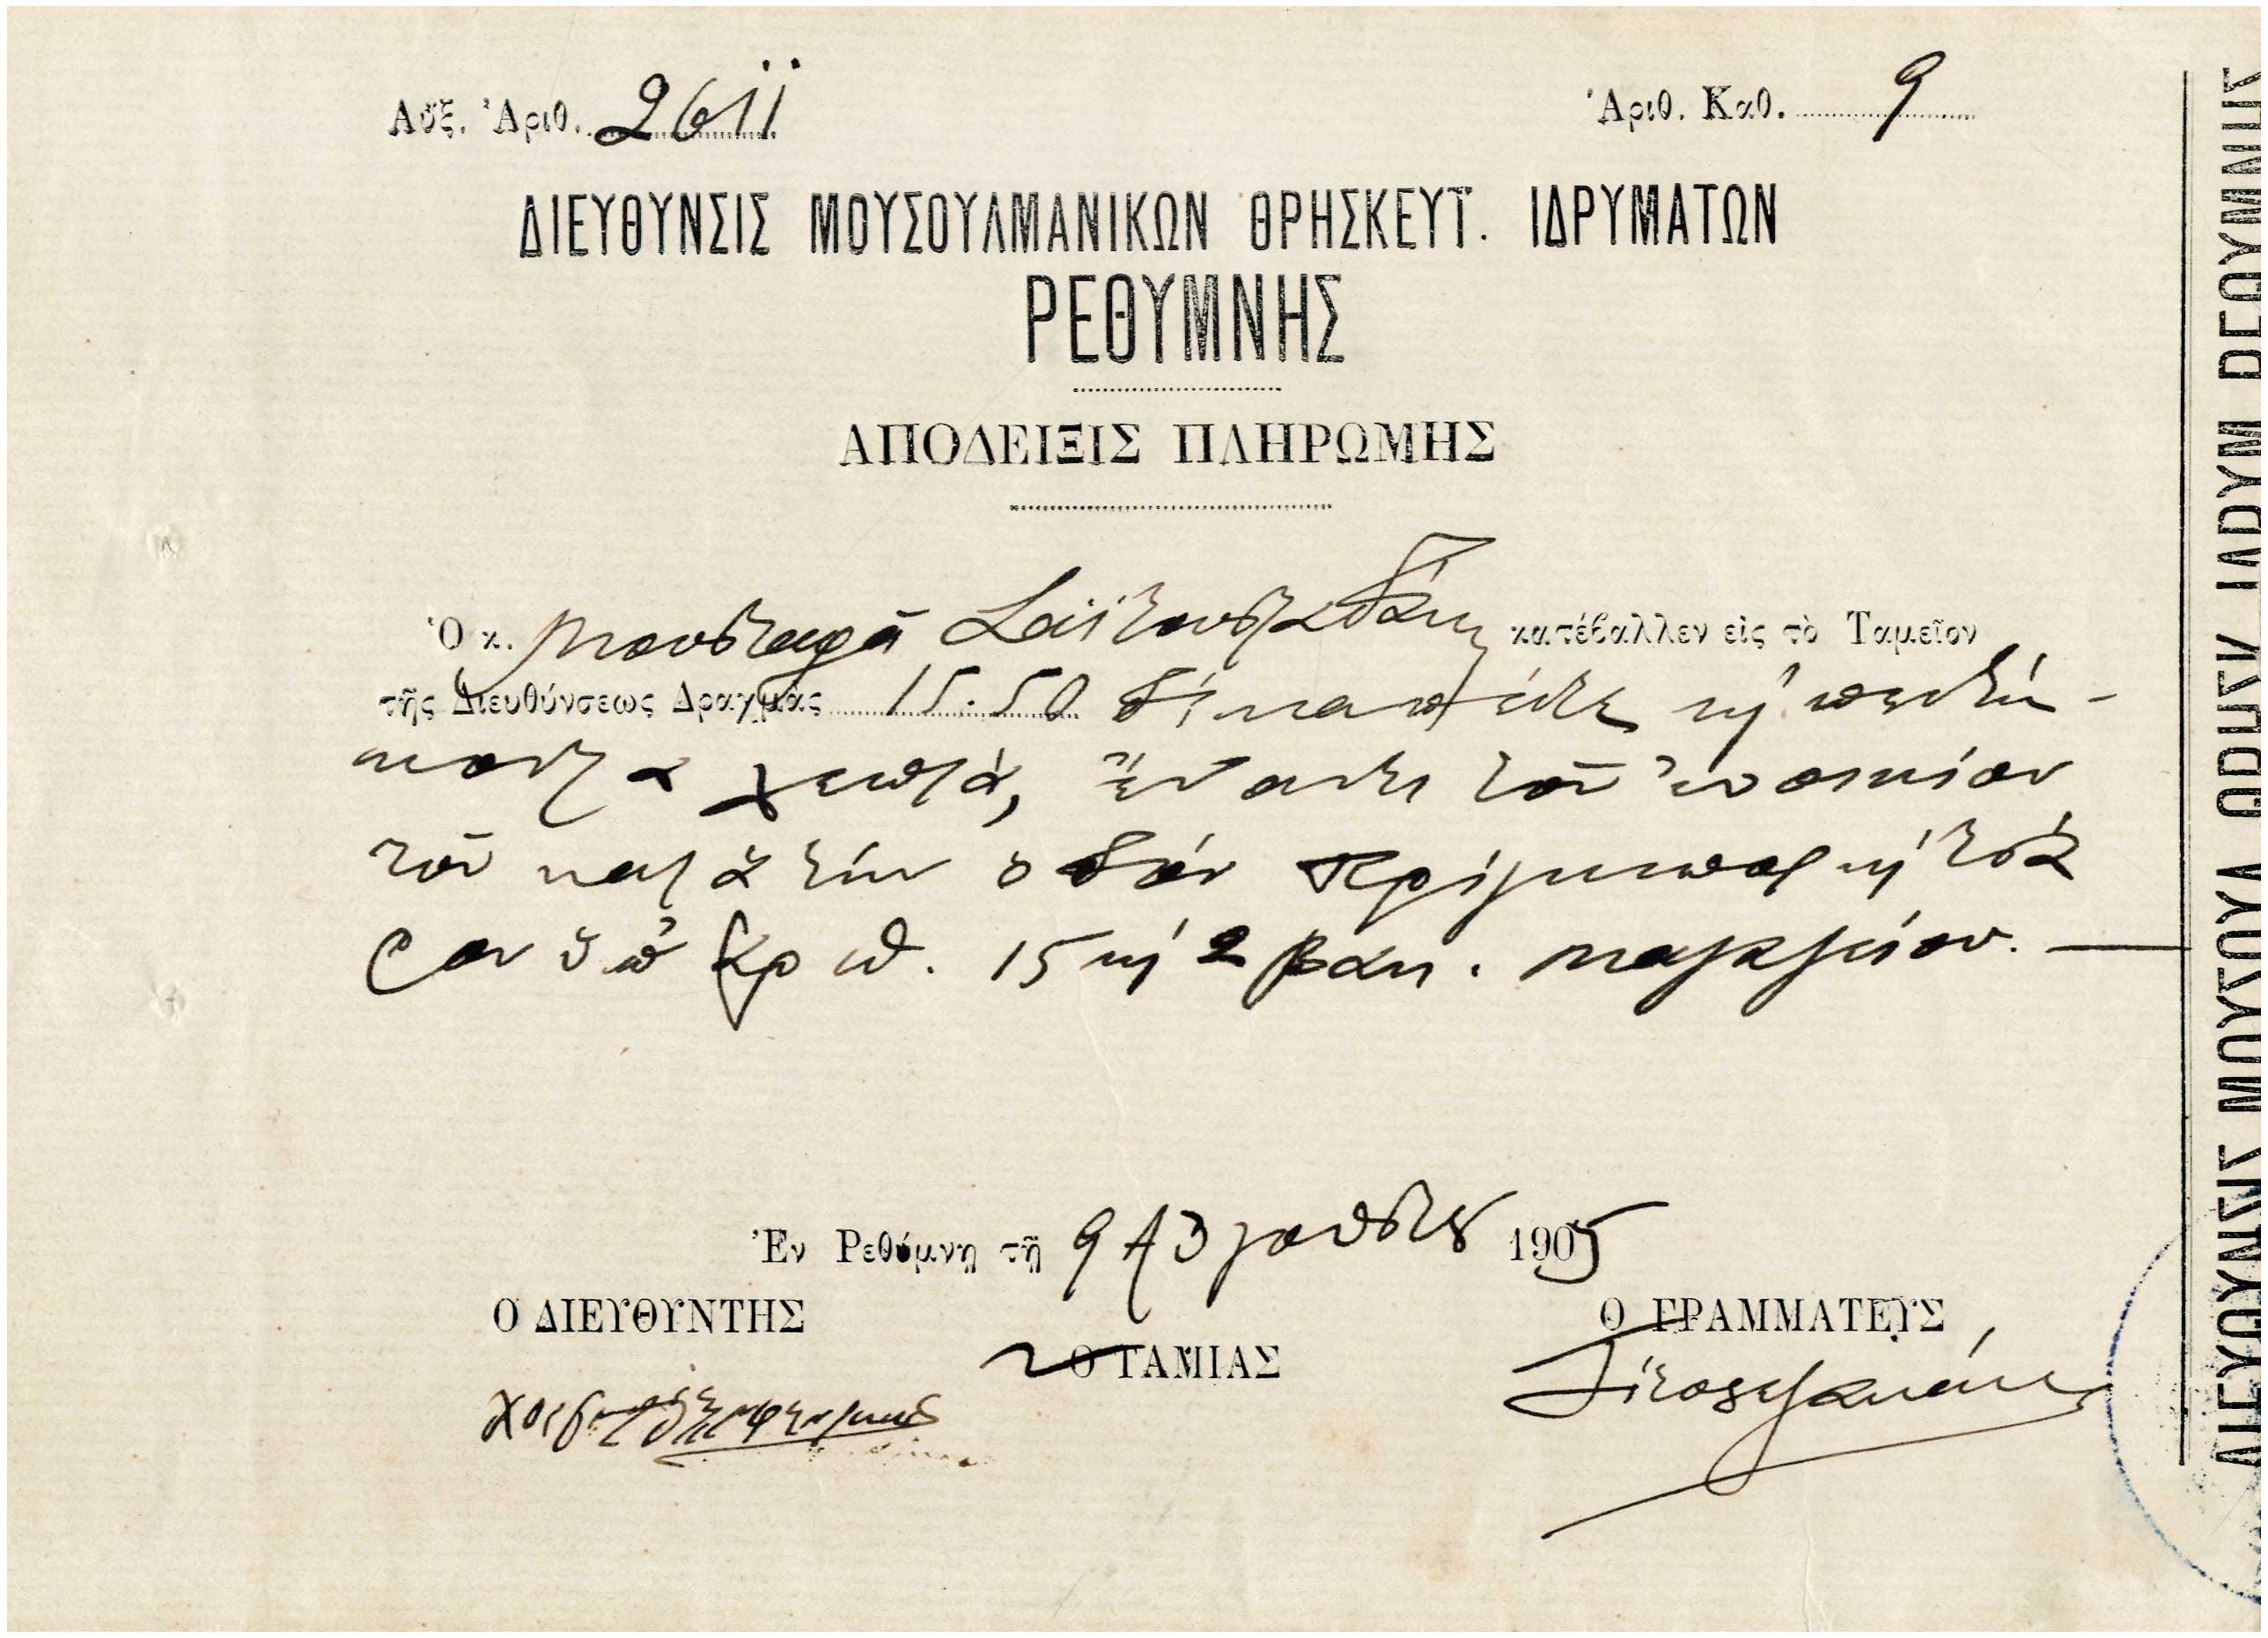 Αὔξ. Ἀριθ. 2611 Ἀριθ. Καθ. 9
ΔΙΕΥΘΥΝΣΙΣ ΜΟΥΣΟΥΛΜΑΝΙΚΩΝ ΘΡΗΣΚΕΥΤ. ΙΔΡΥΜΑΤΩΝ
ΡΕΘΥΜΝΗΣ
ΑΠΟΔΕΙΞΙΣ ΠΛΗΡΩΜΗΣ
Ὁ κ. Μουσταφᾶ κατέβαλλεν εἰς τὸ Ταμεῖον
τῆς Διευθύνσεως Δραχμὰς 15.50 δέκα πέντε κὴ πεντή-
κοντα λεπτά, ἔναντι τοῦ ἐνοικίου
τοῦ κατὰ τὴν ὁδὸν
ὑπ' ἀριθ. 15 κὴ 2 βακ.
Ἐν Ρεθύμνῃ τῇ 9 Αὐγούστου 1905
Ο ΔΙΕΥΘΥΝΤΗΣ Ο ΓΡΑΜΜΑΤΕΥΣ
Ο ΤΑΜΙΑΣ
ΔΙΕΥΘΥΝΣΙΣ ΜΟΥΣΟΥΛ ΘΡΗΣΚ ΙΔΡΥΜ ΡΕΘΥΜΝΗΣ